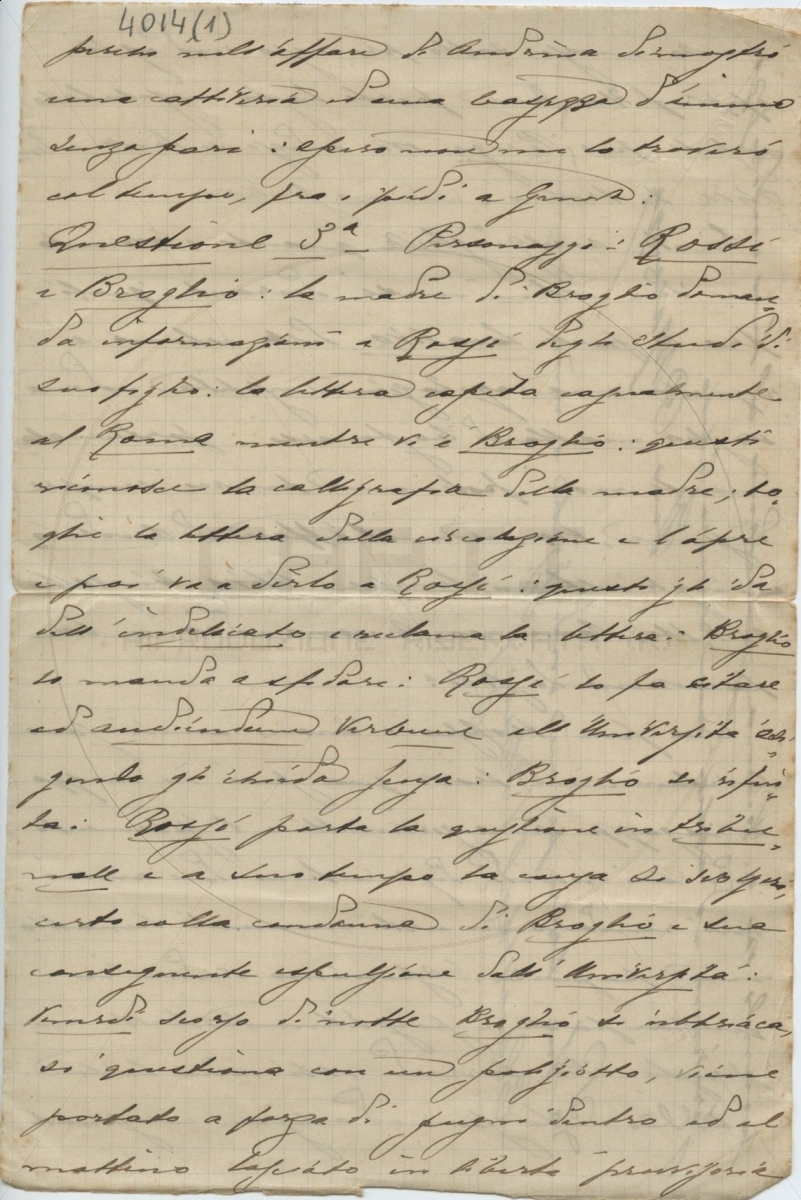 4014(1)
nell'affare di Andreina dimostrò
una cattiveria ed una bassezza d'animo
senza pari: spero non me lo troverò
col tempo, fra i piedi a Genova:
Questione 3ª - Personaggi: Rossi
e Broglio: la madre di Broglio doman„
da informazioni a Rossi degli studi di
suo figlio: la lettera capita casualmente
al Roma mentre vi è Broglio: questi
riconosce la calligrafia della madre; to„
glie la lettera dalla circolazione e l'apre
e poi va a dirlo a Rossi: questo gli dà
dell'indelicato e reclama la lettera: Broglio
lo manda a sfidare: Rossi lo fa citare
ad audiendum verbum all'Università
gli chieda scusa: Broglio si rifiu„
ta: Rossi porta la questione in tribu„
nale e a suo tempo la causa si svolgerà,
certo colla condanna di Broglio e sua
conseguente espulsione dall'Università:
Venerdì scorso di notte Broglio si ubbriaca,
si questiona con un poliziotto, viene
portato a forza di pugni dentro ed al
mattino lasciato in libertà provvisoria